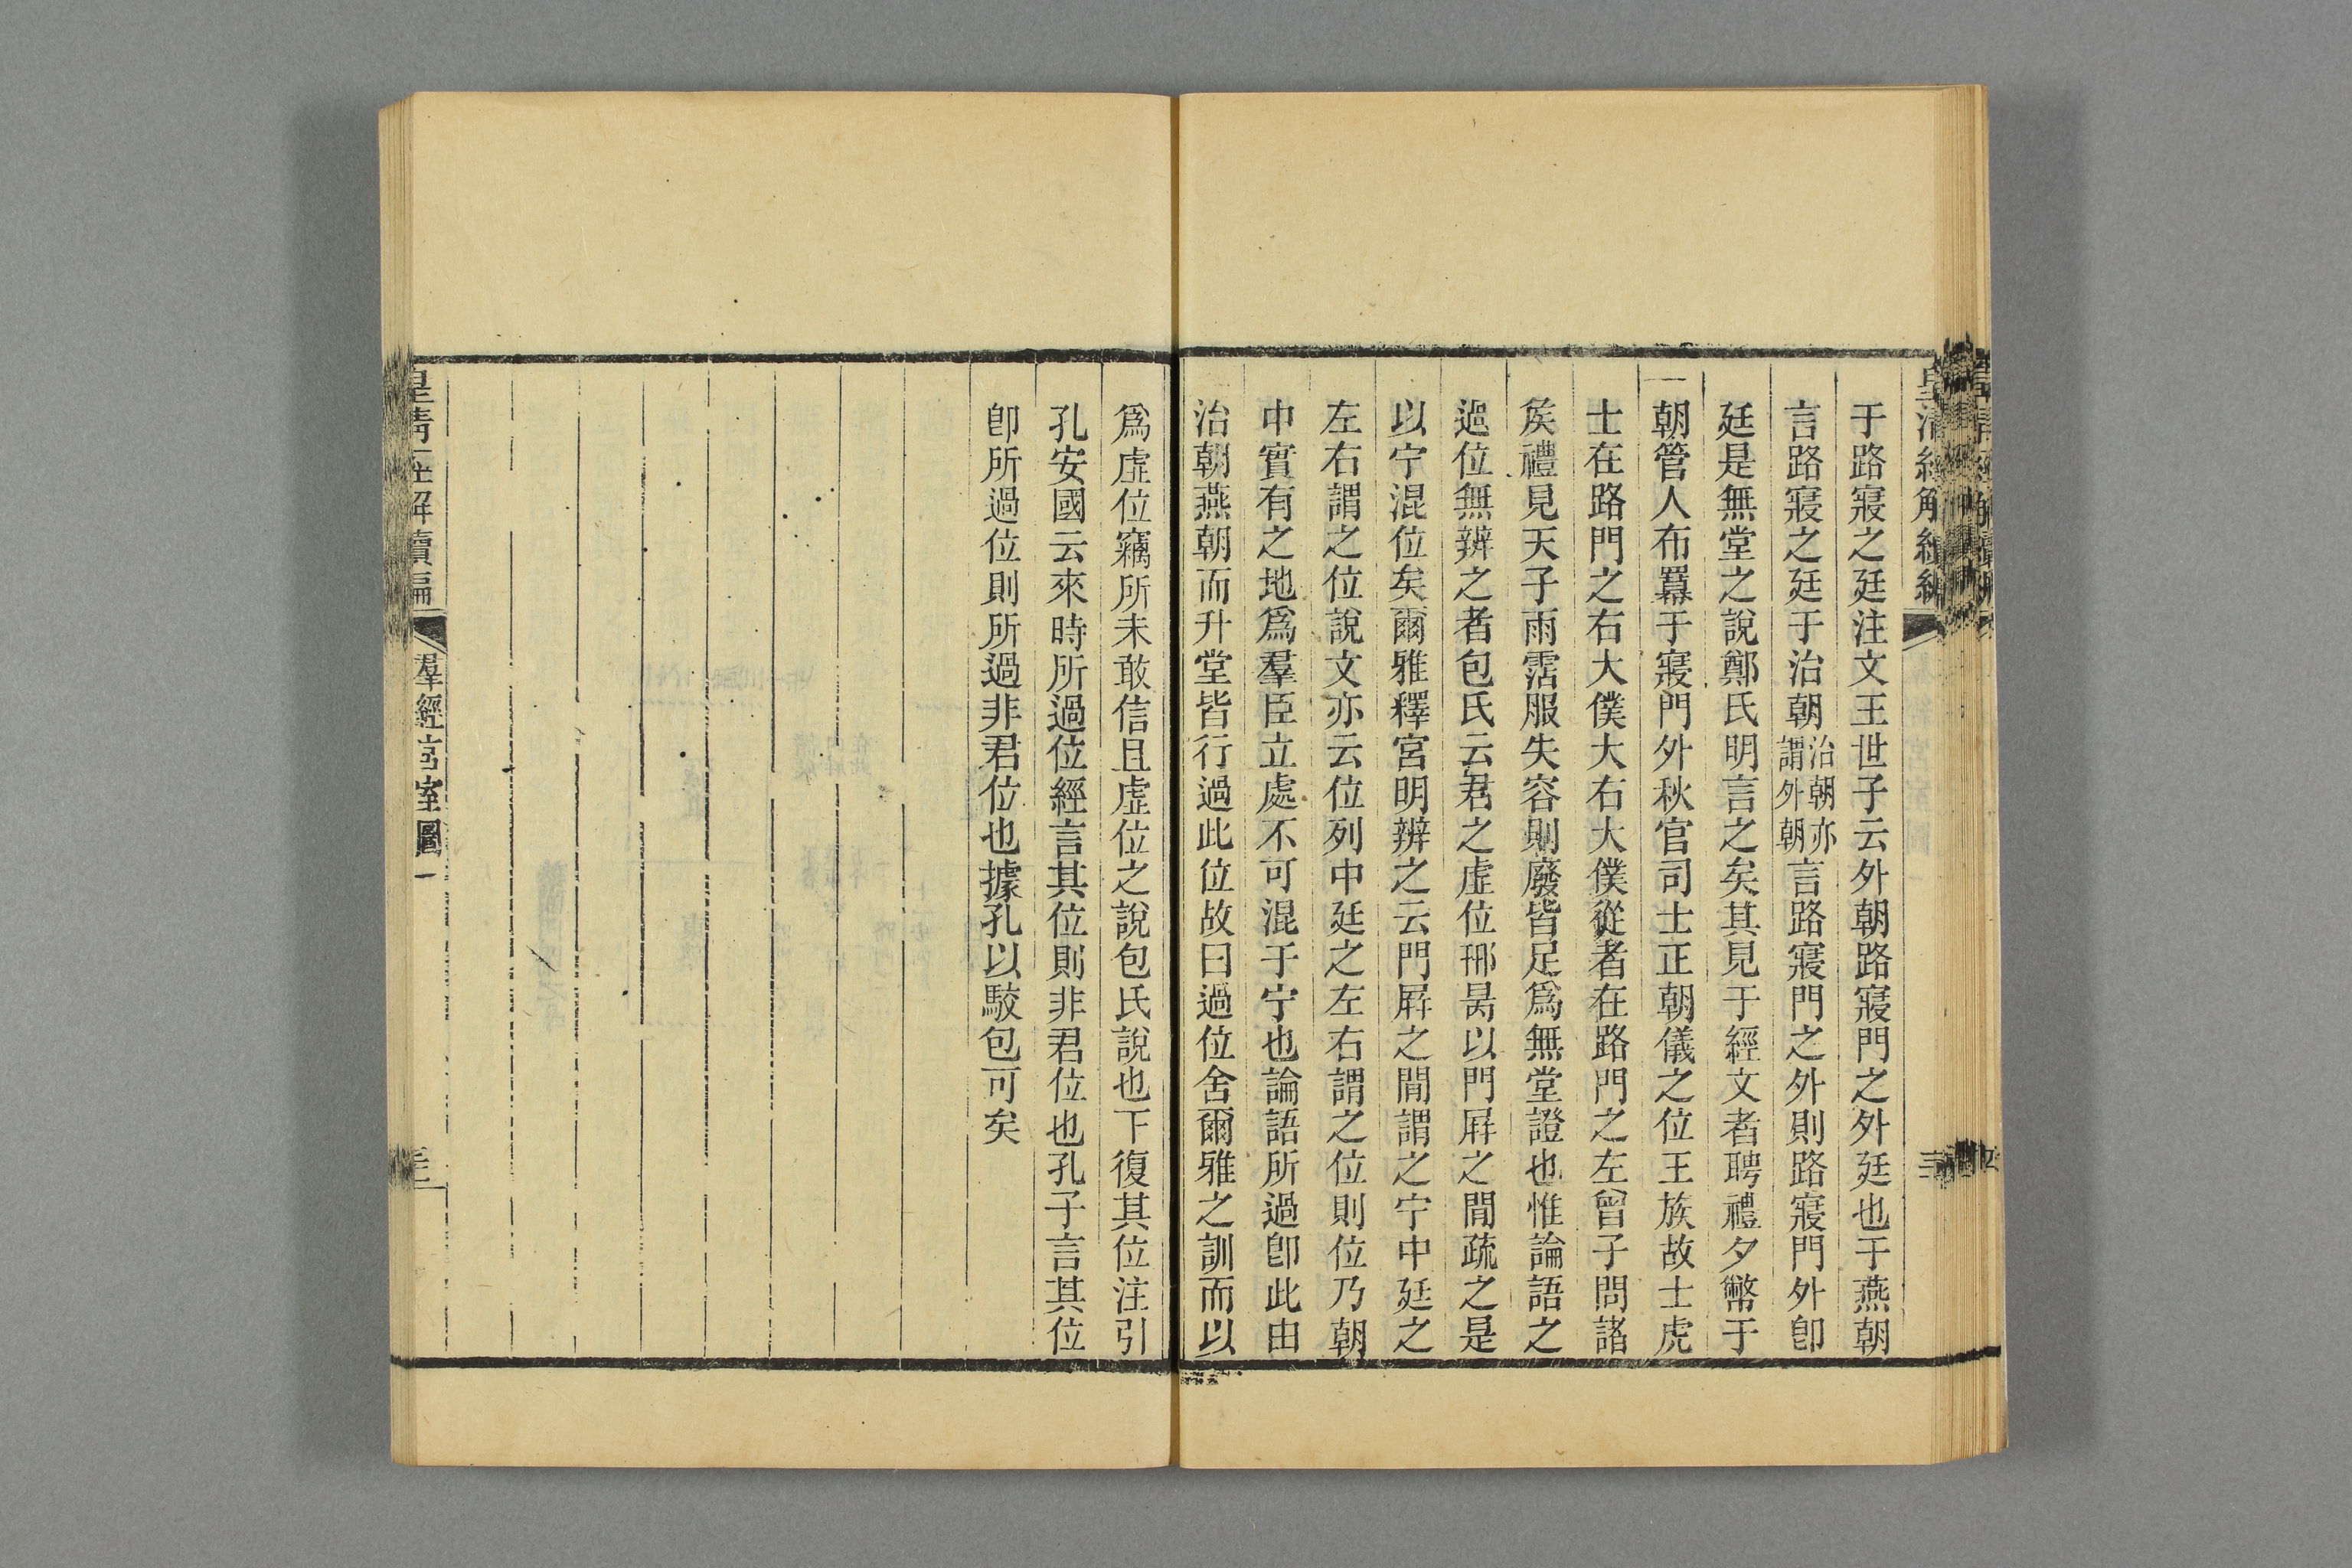 于路寢之廷注文王世子云外朝路寢門之外廷也于燕朝
言路寢之廷于治朝治朝亦謂外朝言路寢門之外則路寢門外卽
廷是無堂之說鄭氏明言之矣其見于經文者聘禮夕幣于
朝管人布羃于寢門外秋官司士正朝儀之位王族故士虎
士在路門之右大僕大右大僕從者在路門之左曾子問諸
矦禮見天子雨霑服失容則廢皆足爲無堂證也惟論語之
過位無辨之者包氏云君之虛位邢昺以門屛之閒疏之是
以宁混位矣爾雅釋宮明辨之云門屛之閒謂之宁中廷之
左右謂之位說文亦云位列中廷之左右謂之位則位乃朝
中實有之地爲羣臣立處不可混于宁也論語所過卽此由
治朝燕朝而升堂皆行過此位故曰過位舍爾雅之訓而以
爲虛位竊所未敢信且虛位之說包氏說也下復其位注引
孔安國云來時所過位經言其位則非君位也孔子言其位
卽所過位則所過非君位也據孔以駁包可矣
皇清經解續編
羣經宮室圖一